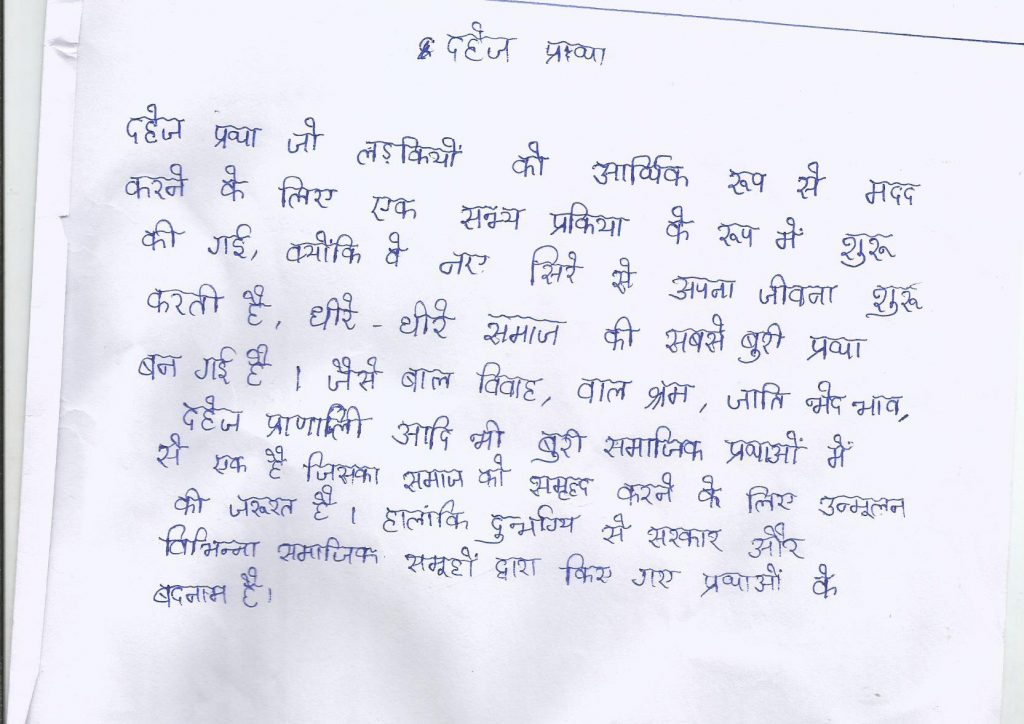 दहेज प्रथा
दहेज प्रथा जो लड़कियों को आर्थिक रूप से मदद
करने के लिए एक सभ्य प्रक्रिया के रूप में शुरू
की गई, क्योंकि वे नए सिरे से अपना जीवना शुरू
करती है, धीरे - धीरे समाज की सबसे बुरी प्रथा
बन गई है । जैसे बाल विवाह, बाल श्रम, जाति भेद भाव,
देहेज प्राणाली आदि भी बुरी समाजिक प्रथाओं में
से एक है जिसका समाज को समृद्द करने के लिए उन्मूलन
की जरूरत है । हालांकि दुन्भग्यि से सरकार और
विभिन्ना समाजिक समूहों द्वारा किए गए प्रथाओं के
बदनाम है।